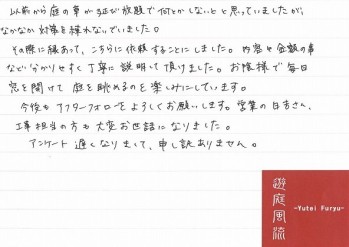 以前から庭の草が延び放題で何とかしないと と思っていましたが、
なかなか対策を練れないでいました。
その際に縁あって、こちらに依頼することにしました。内容や金額の事
など分かりやすく丁寧に説明して頂けました。お陰様で毎日
窓を開けて 庭を眺めるのを楽しみにしています。
今後もアフターフォローをよろしくお願いします。営業の日吉さん、
工事担当の方も大変お世話になりました。
アンケート 遅くなりまして、申し訳ありません。
遊庭風流
-Yutei Furyu-